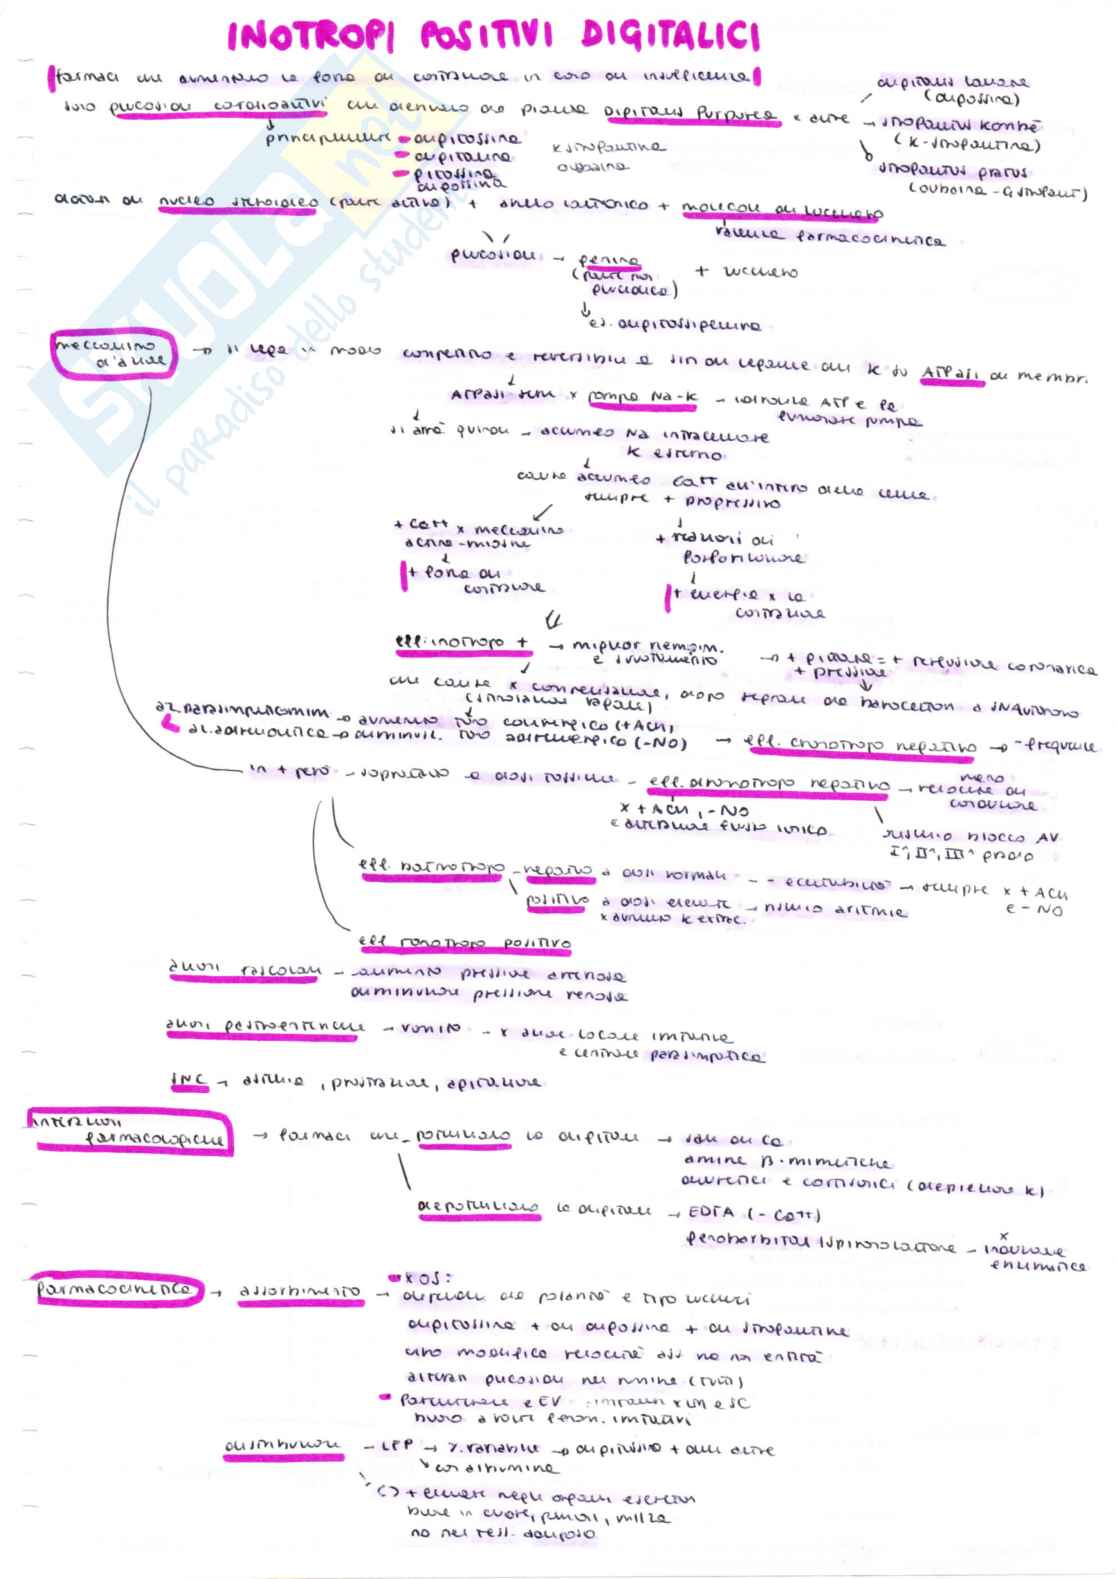 INOTROPI POSITIVI DIGITALICI
farmaci che aumentano la forza di contrazione in caso di insufficienza
sono glucosidi cardioattivi che derivano da pianta Digitalis Purpurea e altre → strofantus kombè
digitalis lanata
(digossina)
(K-strofantina)
strofantus gratus
(ouabaina - G strofant)
principalmente - digitossina
digitalina
gitossina
digossina
K strofantina
ouabaina
dotati di nucleo steroideo (parte attiva) + anello lattonico + molecole di zucchero
valenza farmacocinetica
glucosidi → genina + zucchero
(parte non
glucidica)
es. digitossigenina
meccanismo
d'azione
→ si lega in modo competitivo e reversibile a siti di legame del K su ATPasi di membr.
ATPasi serve x pompa Na-K - idrolizza ATP e fa
funzionare pompa
si avrà quindi - accumulo Na intracellulare
K esterno
causa accumulo Ca++ all'interno della cellula
sempre + progressivo
+ Ca++ x meccanismo
actina-miosina
+ forza di
contrazione
+ reazioni di
fosforilazione
+ energia x la
contrazione
eff. inotropo + → miglior riempim.
e svuotamento
→ + gittata = + perfusione coronarica
+ pressione
che causa x compensazione, dopo segnale da barocettori a SNAutonomo
(stimolazione vagale)
az. parasimpaticomim. → aumento tono colinergico (+ACh)
az. adrenolitica → diminuiz. tono adrenergico (-NO) → eff. cronotropo negativo → - frequenza
in + però - soprattutto a dosi tossiche - eff. dromotropo negativo → meno
velocità di
conduzione
x + ACh, - NO
e alterazione flusso ionico
rischio blocco AV
I°, II°, III° grado
eff. batmotropo - negativo a dosi normali - - eccitabilità → sempre x + ACh
e - NO
positivo a dosi elevate → rischio aritmie
x aumento K extrac.
eff. tonotropo positivo
azioni vascolari - aumento pressione arteriosa
diminuzione pressione venosa
azioni gastroenteriche → vomito - x azione locale irritativa
e centrale parasimpatica
SNC → astenia, prostrazione, agitazione
interazioni
farmacologiche → farmaci che - potenziano la digitale → sali di Ca
amine β-mimetiche
diuretici e cortisonici (deplezione K)
depotenziano la digitale → EDTA (- Ca++)
fenobarbital spironolattone - x
induzione
enzimatica
farmacocinetica → assorbimento → x OS:
dipende da polarità e tipo zuccheri
digitossina + di digossina + di strofantine
cibo modifica velocità ass. ma non entità
alterati glucosidi nel rumine (tutti)
Parenterale e EV - irritanti x IM e SC
hanno a volte fenom. irritativi
distribuzione - LPP → % variabile → digitossina + delle altre
con albumina
[] + elevate negli organi escretori
bene in cuore, polmoni, milza
no nel tess. adiposo
SKUOLA.net
il paradiso dello studente